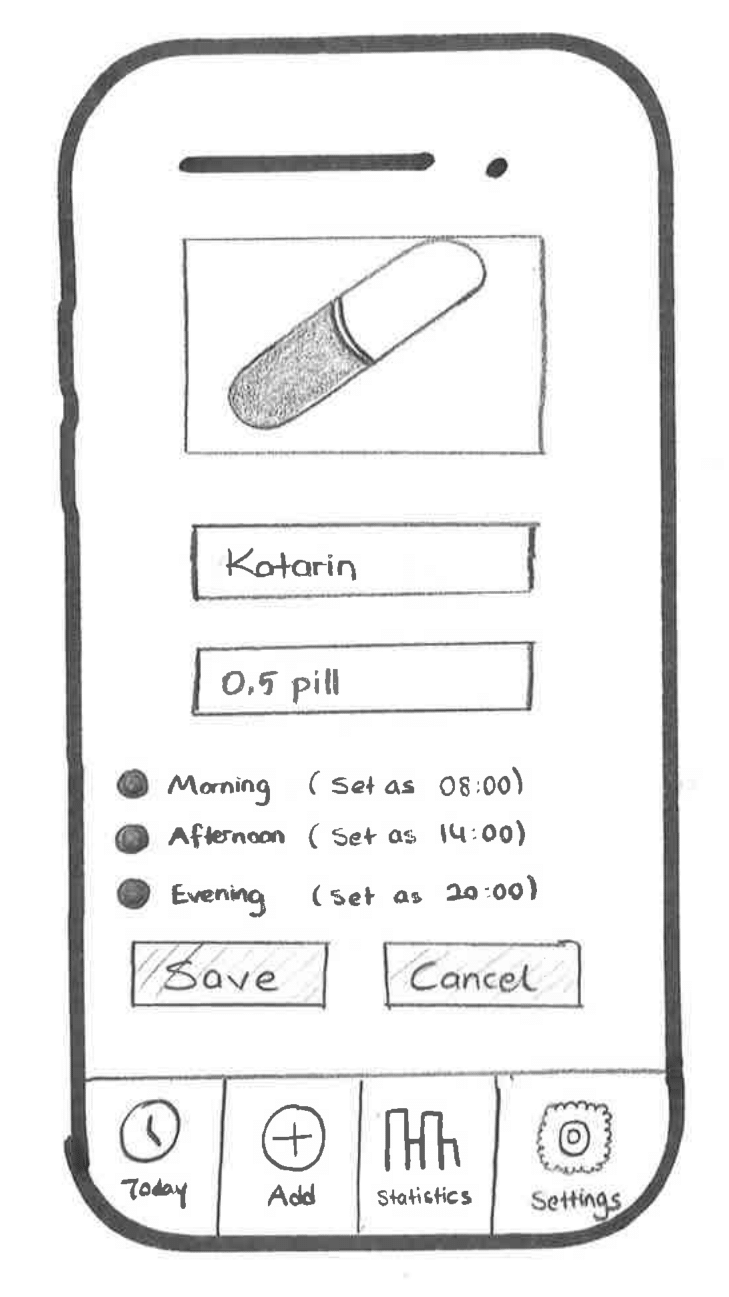 Katarin
0.5 pill
Morning (Set as 08:00)
Afternoon (Set as 14:00)
Evening (Set as 20:00)
Save Cancel
Today Add Statistics Settings